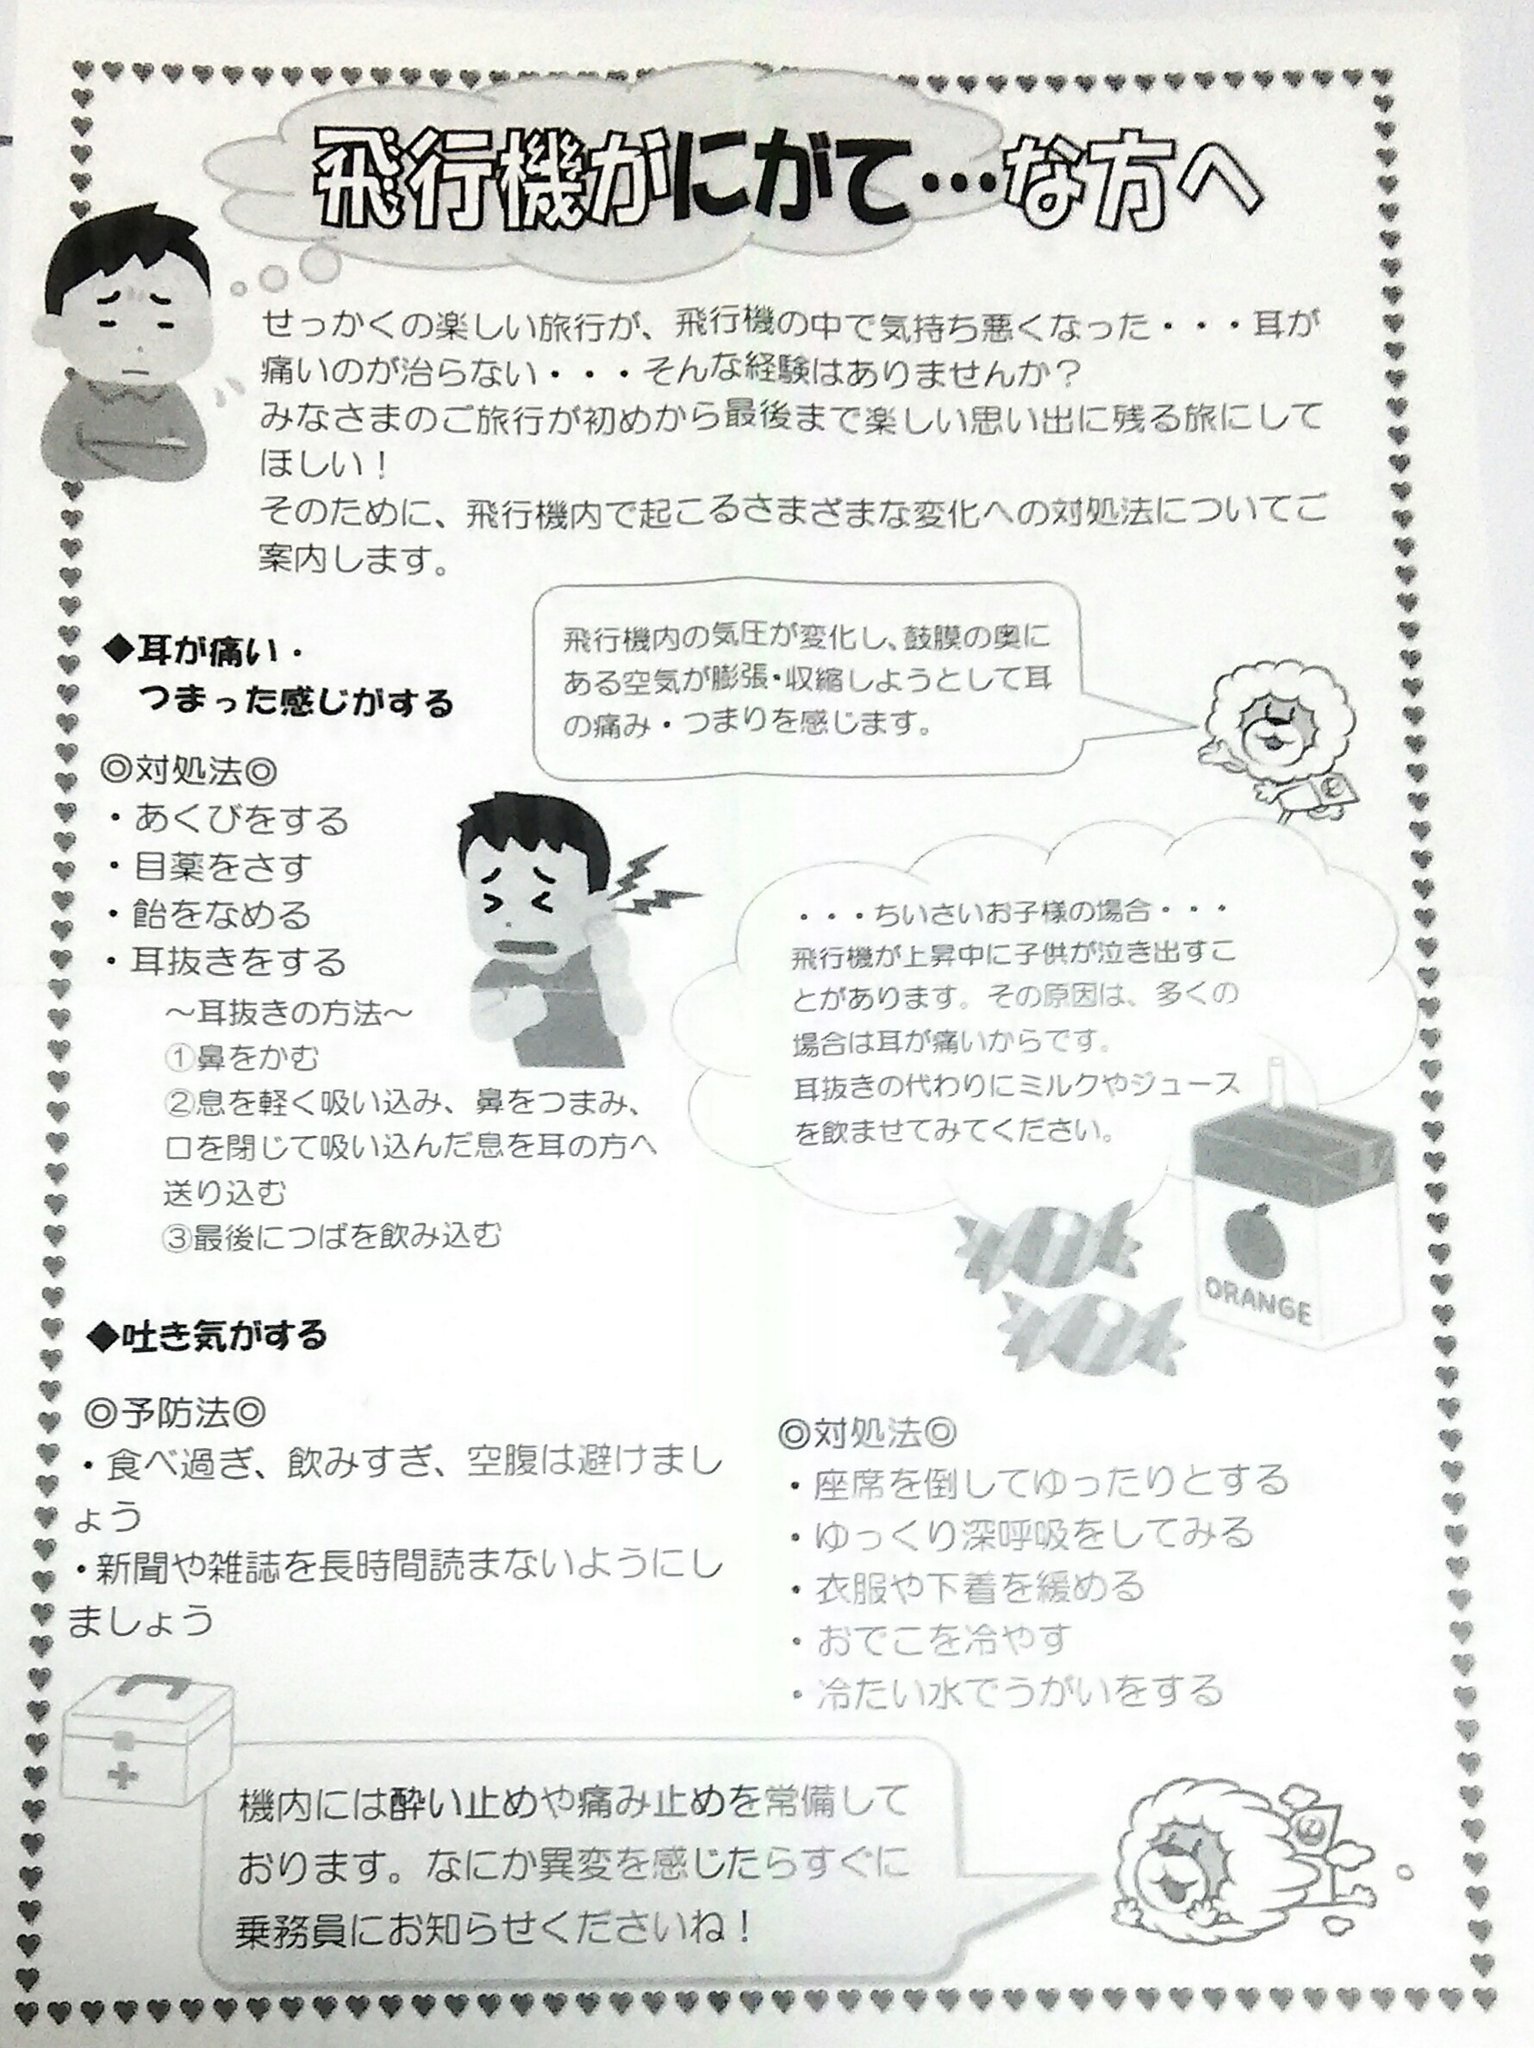 飛行機がにがて…な方へ
せっかくの楽しい旅行が、飛行機の中で気持ち悪くなった・・・耳が
痛いのが治らない・・・そんな経験はありませんか？
みなさまのご旅行が初めから最後まで楽しい思い出に残る旅にして
ほしい！
そのために、飛行機内で起こるさまざまな変化への対処法についてご
案内します。
◆耳が痛い・
つまった感じがする
飛行機内の気圧が変化し、鼓膜の奥に
ある空気が膨張・収縮しようとして耳
の痛み・つまりを感じます。
◎対処法◎
・あくびをする
・目薬をさす
・飴をなめる
・耳抜きをする
～耳抜きの方法～
①鼻をかむ
②息を軽く吸い込み、鼻をつまみ、
口を閉じて吸い込んだ息を耳の方へ
送り込む
③最後につばを飲み込む
・・・ちいさいお子様の場合・・・
飛行機が上昇中に子供が泣き出すこ
とがあります。その原因は、多くの
場合は耳が痛いからです。
耳抜きの代わりにミルクやジュース
を飲ませてみてください。
ORANGE
◆吐き気がする
◎予防法◎
・食べ過ぎ、飲みすぎ、空腹は避けまし
ょう
・新聞や雑誌を長時間読まないようにし
ましょう
◎対処法◎
・座席を倒してゆったりとする
・ゆっくり深呼吸をしてみる
・衣服や下着を緩める
・おでこを冷やす
・冷たい水でうがいをする
機内には酔い止めや痛み止めを常備して
おります。なにか異変を感じたらすぐに
乗務員にお知らせくださいね！